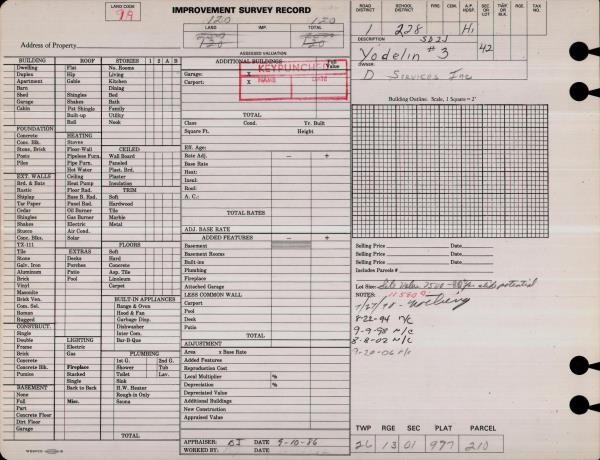 LAND CODE
99
IMPROVEMENT SURVEY RECORD
120 120
LAND IMP. TOTAL
120 120
ASSESSED VALUATION
Address of Property
ROAD DISTRICT SCHOOL DISTRICT FIRE CEM. A.P. HOSP. SEC OR LOT TWP. OR BLK. RGE. TAX NO.
1 228 H1
DESCRIPTION
42
Yodelin #3
OWNER:
D Services Inc
BUILDING ROOF STORIES 1 2 A B
Dwelling Flat No. Rooms
Duplex Hip Living
Apartment Gable Kitchen
Barn Dining
Shed Shingles Bed
Garage Shakes Bath
Cabin Pat Shingle Family
Built-up Utility
Roll Nook
FOUNDATION
Concrete HEATING
Conc. Blk. Stoves CEILED
Stone, Brick Floor-Wall Wall Board
Posts Pipeless Furn. Paneled
Piles Pipe Furn. Plast. Brd.
Hot Water Plaster
EXT. WALLS Ceiling Insulation
Brd. & Bats Heat Pump TRIM
Rustic Floor Rad. Soft
Shiplap Base B. Rad. Hardwood
Tar Paper Radiant Tile
Cedar Oil Burner Marble
Shingles Gas Burner Metal
Shakes Electric
Stucco Air Cond.
Conc. Blks. Solar FLOORS
TX-111 Soft
Tile EXTRAS Hard
Stone Decks Concrete
Galv. Iron Porches Asp. Tile
Aluminum Patio Linoleum
Brick Pool Carpet
Vinyl
Masonite
Brick Ven. BUILT-IN APPLIANCES
Com. Sel. Range & Oven
Roman Hood & Fan
Rugged Garbage Disp.
CONSTRUCT. Dishwasher
Single Inter Com.
Double LIGHTING Bar-B-Que
Frame Electric
Brick Gas PLUMBING
Concrete 1st G. 2nd G.
Concrete Blk. Fireplace Shower Tub
Pumice Stacked Toilet Lav.
Single Sink
BASEMENT Back to Back H.W. Heater
None Rough-in Only
Full Misc. Sauna
Part
Concrete Floor
Dirt Floor
Garage
TOTAL
ADDITIONAL BUILDINGS Full Value
KEYPUNCHED
NAME DATE
Garage: X
Carport: X
TOTAL
Class Cond. Yr. Built
Square Ft. Height
Eff. Age:
Rate Adj. − +
Base Rate
Bsmt.
Insul.
Roof:
A. C.:
TOTAL RATES
ADJ. BASE RATE
ADDED FEATURES − +
Basement
Basement Rooms
Built-ins
Plumbing
Fireplace
Attached Garage
LESS COMMON WALL
Carport
Pool
Deck
Patio
TOTAL
ADJUSTMENT
Area x Base Rate
Added Features
Reproduction Cost
Local Multiplier %
Depreciation %
Depreciated Value
Additional Buildings
New Construction
Appraised Value
APPRAISER: DATE 9-10-86
WORKED BY: DATE
Building Outline: Scale, 1 Square = 2'
Selling Price Date
Selling Price Date
Selling Price Date
Includes Parcels #
Lot Size: Site Value 2500 potential
NOTES: 11580
7/27/90
8-22-94 n/c
9-9-98 n/c
8-8-02 n/c
9-20-06 n/c
TWP RGE SEC PLAT PARCEL
26 13 01 997 210